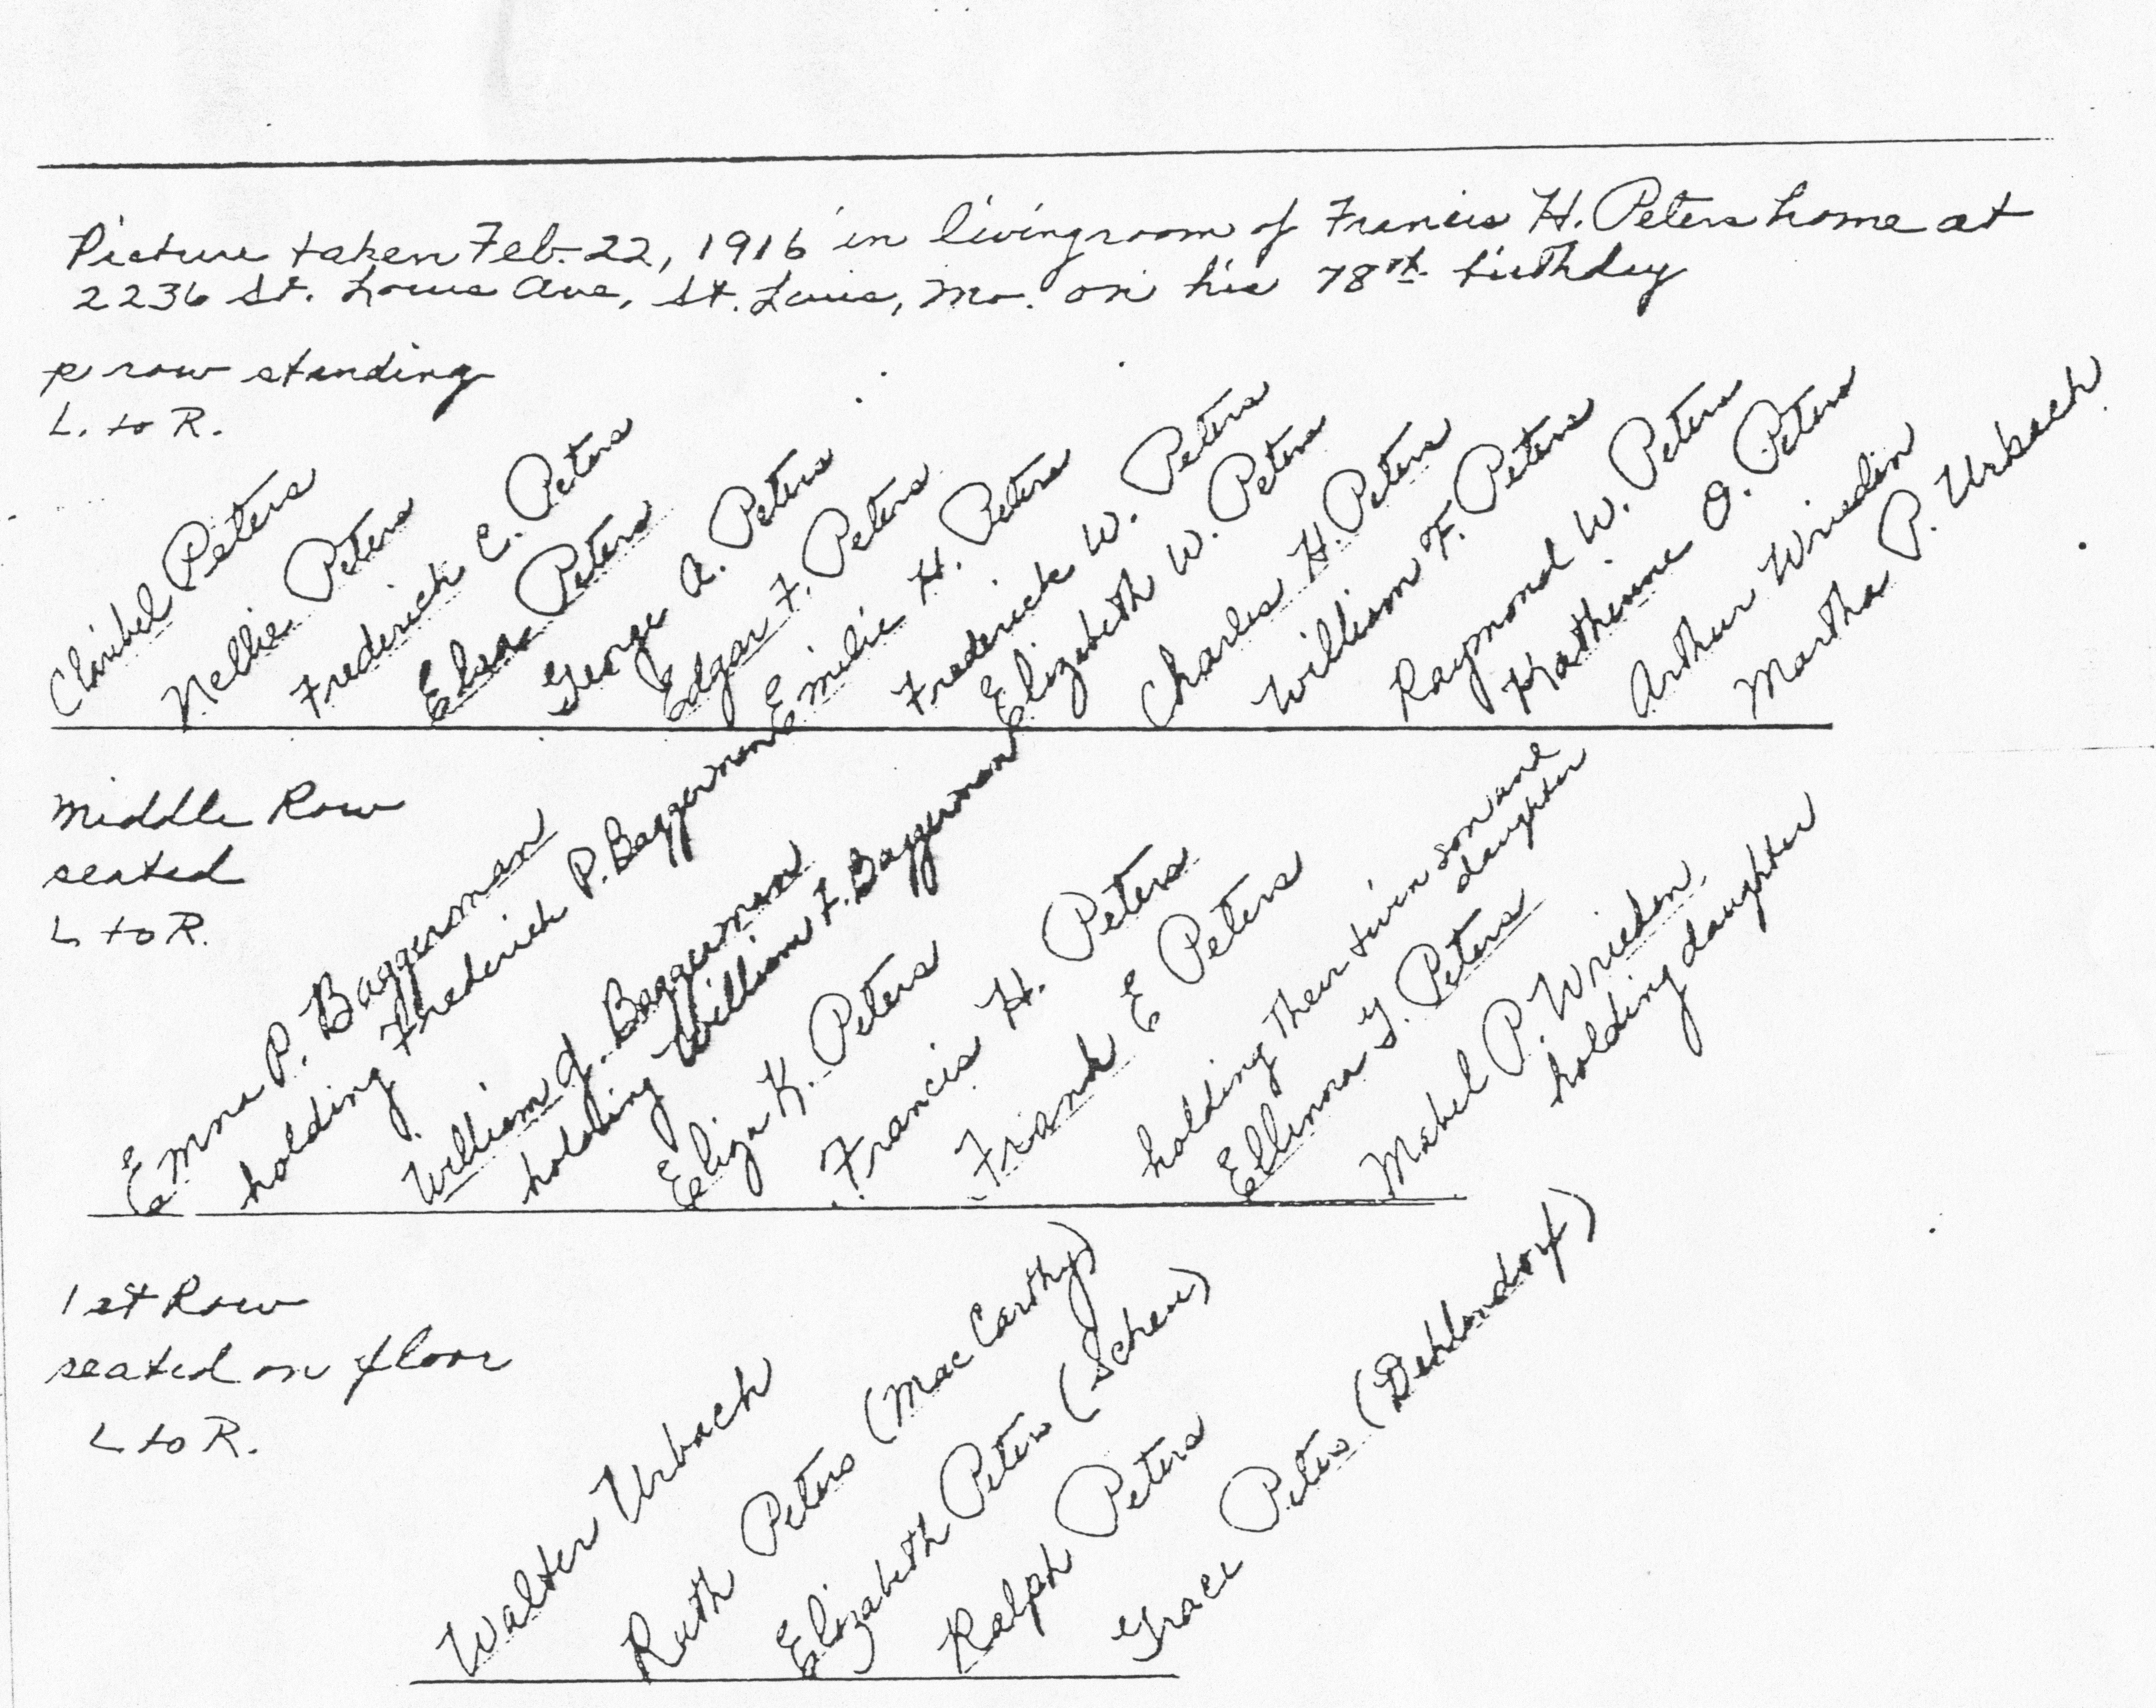 Picture taken Feb. 22, 1916 in livingroom of Francis H. Peters home at
2236 St. Louis Ave, St. Louis, Mo. on his 78th birthday
p row standing
L. to R.
Claribel Peters
Nellie Peters
Frederick C. Peters
Peters
George A. Peters
Edgar F. Peters
Emilie H. Peters
Frederick W. Peters
Elizabeth W. Peters
Charles H. Peters
William F. Peters
Raymond W. Peters
Katherine O. Peters
Arthur Wrieden
Martha P. Urbach
Middle Row
seated
L to R.
Emma P. Baggerman
holding Frederick P. Baggerman
William J. Baggerman
holding William F. Baggerman
Eliza K. Peters
Francis H. Peters
Frank E Peters
holding their twin son and
daughter
Ellinora Y. Peters
Mabel P. Wrieden
holding daughter
1st Row
seated on floor
L to R.
Walter Urbach
Ruth Peters (MacCarthy)
Elizabeth Peters (Scheu)
Ralph Peters
Grace Peters (Dehlendorf)